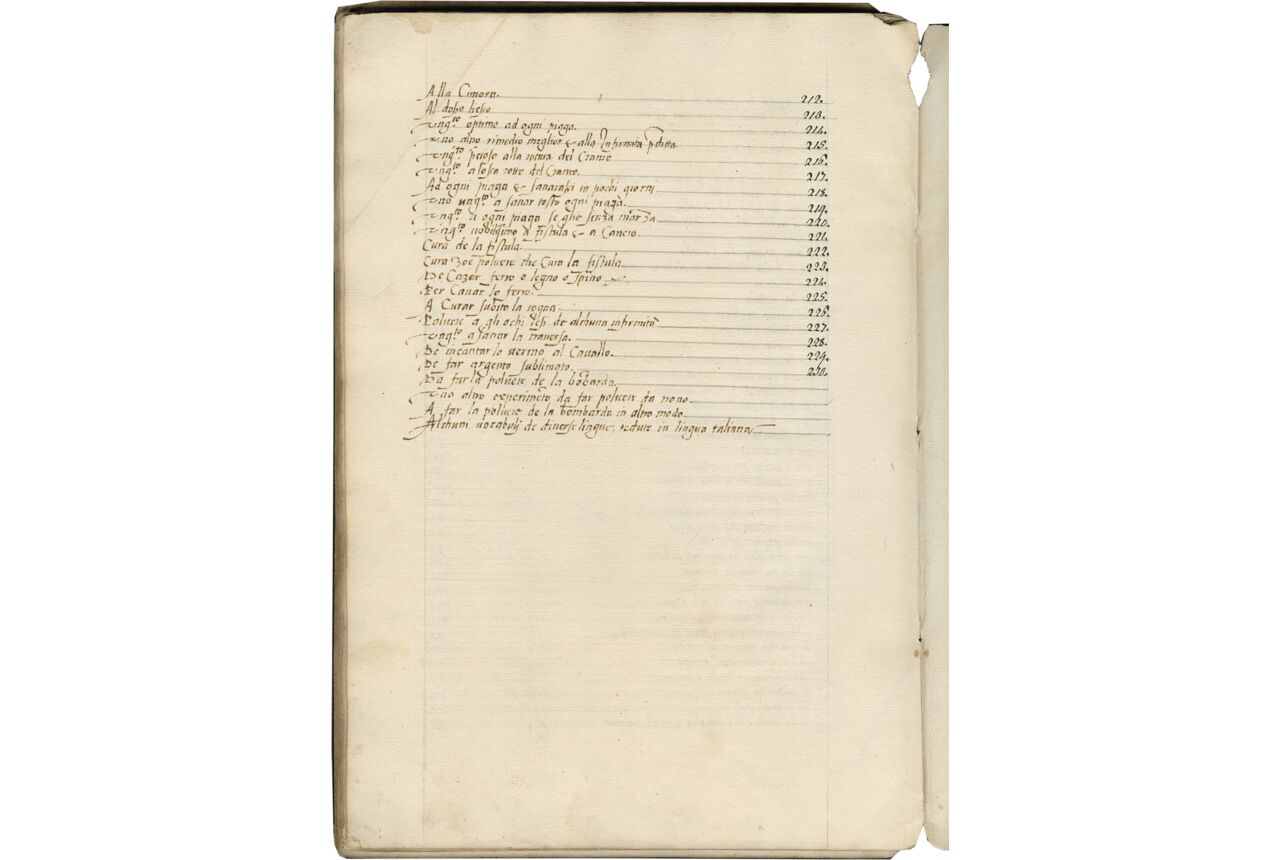 Alla Cimora. 212.
Al dosso 213.
Ung.to optimo ad ogni piaga. 214.
Uno altro rimedio meglior & alla Infirmita pditta 215.
Ung.to alla rotura del Cranio 216.
Ung.to a l'ossa rotte del Craneo. 217.
Ad ogni piaga & sanarassi in pochi giorni 218.
Uno ung.to a sanar tosto ogni piaga. 219.
Ung.to a ogni piaga se glie senza marza 220.
Ung.to nobilissimo a fistula & a Cancro. 221.
Cura de la fistula. 222.
Cura zoe polvere che Cura la fistula 223.
De Cazar ferro o legno o spino 224.
Per Cavar lo ferro. 225.
A Curar subito la rogna 226.
Polvere a gli ochi lesi de alchuna infirmita 227.
Ung.to a sanar la traversa. 228.
De incantar lo vermo al Cavallo. 229.
De far argento sublimato. 230.
Da far la polvere de la bobarda.
Uno altro experimeto da far polvere da
A far la polvere de la bombarda in altro modo
Alchuni vocabulj de diverse lingue, redute in lingua taliana